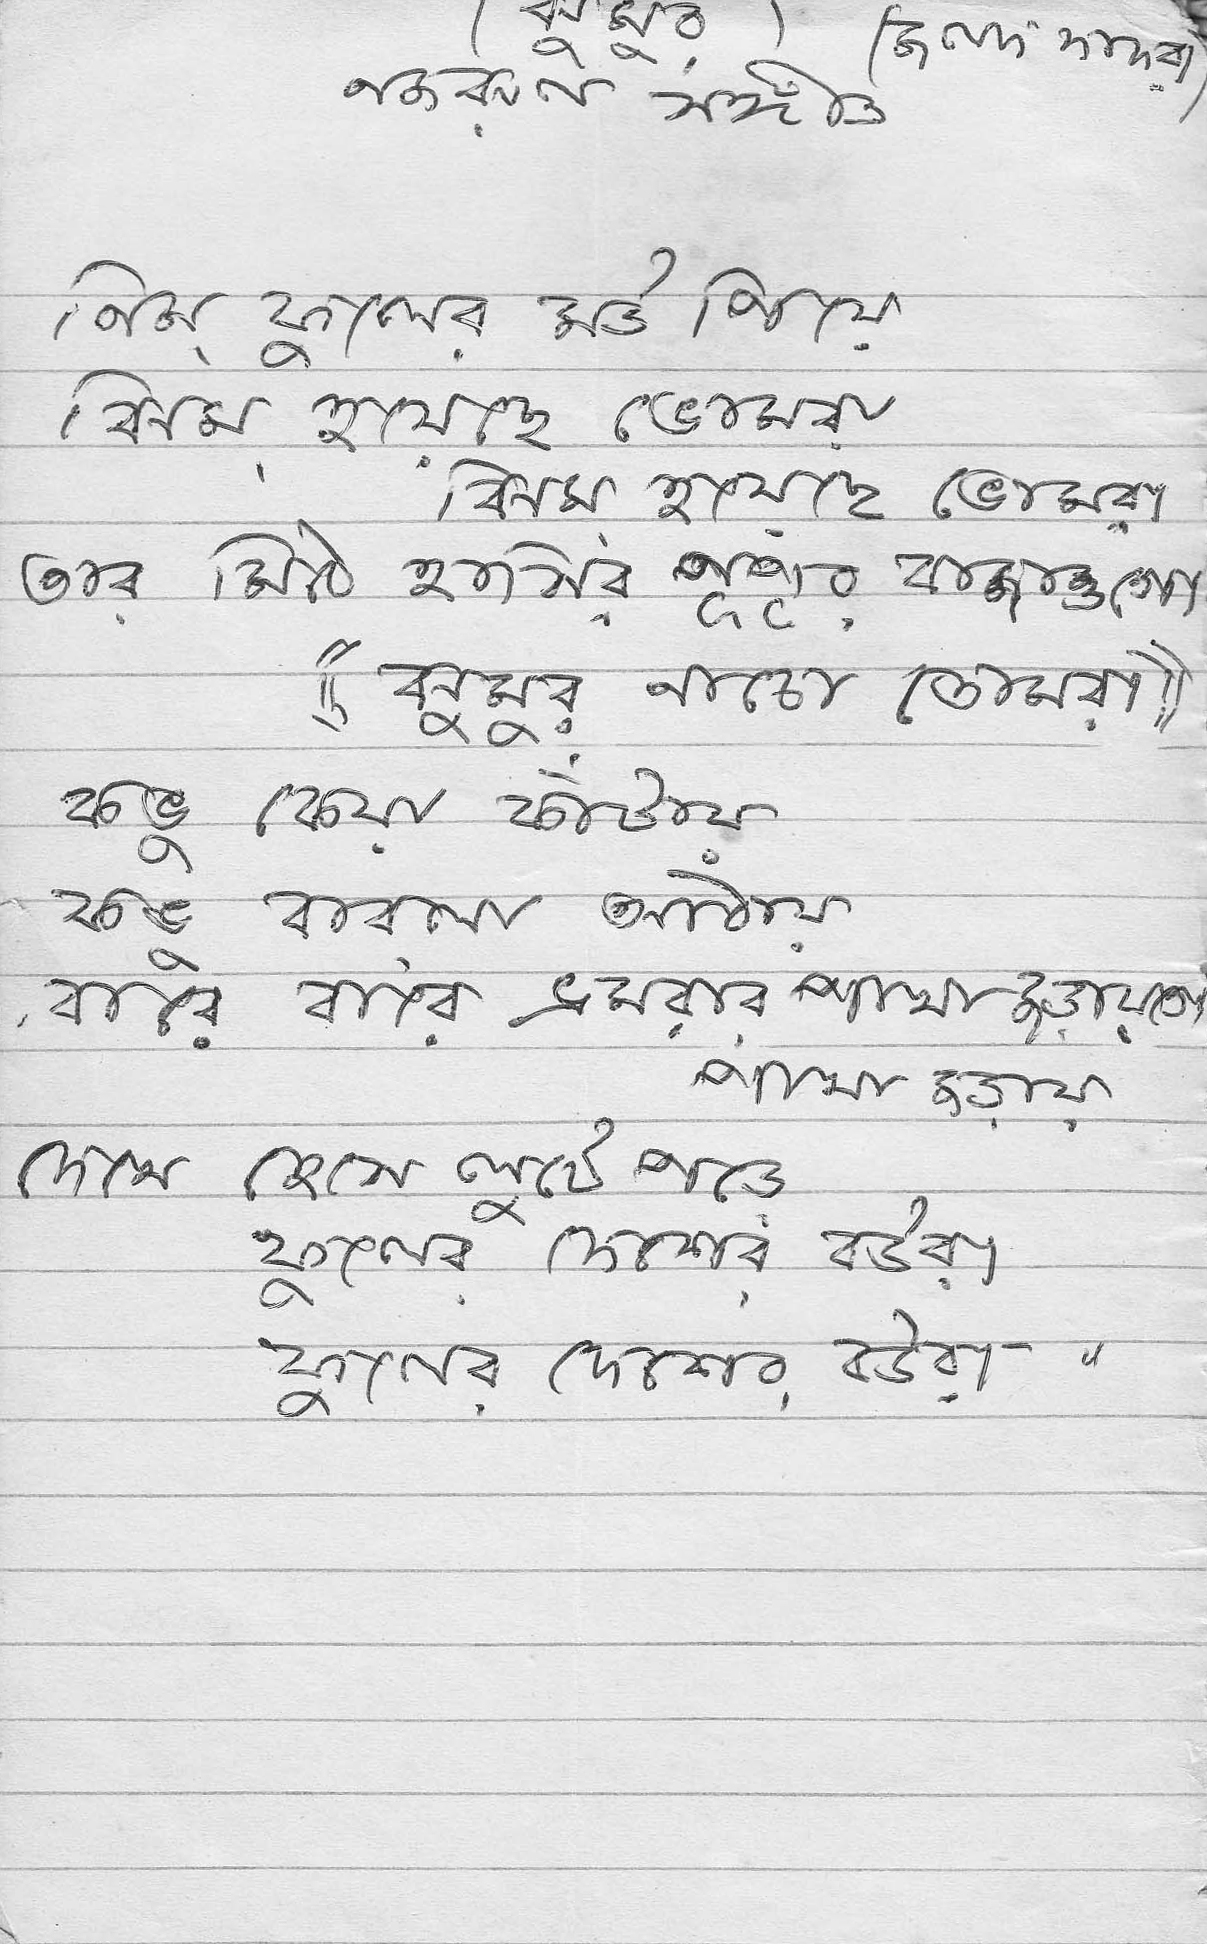 (ঝুমুর) (জলদ দাদরা)
নজরুল সঙ্গীত
নিম্ ফুলের মউ পিয়ে
ঝিম্ হয়েছে ভোমরা
ঝিম্ হয়েছে ভোমরা
তার মিঠে হাসির নূপুর বাজাও গো
ঝুমুর নাচো তোমরা
কভু কেয়া কাঁটায়
কভু বাবলা আঠায়
বারে বারে ভ্রমরার পাখা জড়ায় গো
পাখা জড়ায়
দেখে হেসে লুটে পড়ে
ফুলের দেশের বউরা
ফুলের দেশের বউরা "